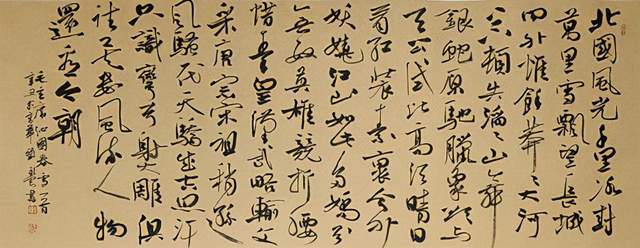 北國風光千里冰封
萬里雪飄望長城
内外惟餘莽々大河
上下頓失滔々山舞
銀蛇原馳臘象欲与
天公試比高須晴日
看紅裝素裹分外
妖嬈江山如此多嬌引
無數英雄競折腰
惜秦皇漢武略輸文
采唐宗宋祖稍遜
風騷一代天驕成吉思汗
只識彎弓射大雕俱
往矣數風流人物
還看今朝
毛主席沁園春雪一首
辛丑於京華